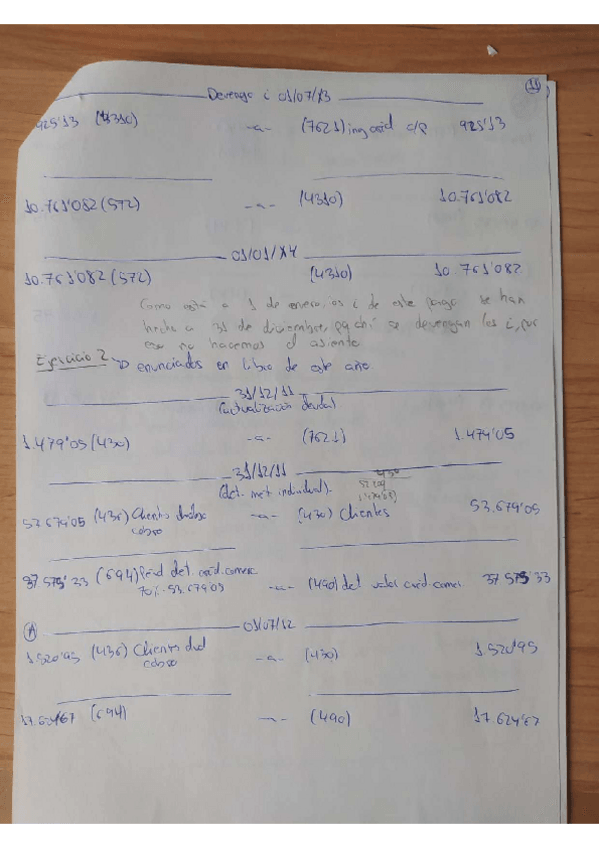 11
Devengo i 01/07/13
925'13 (4310) -a- (7621) ing créd c/p 925'13
10.761'082 (572) -a- (4310) 10.761'082
01/01/14
10.761'082 (572) (4310) 10.761'082
Como está a 1 de enero, os i de este pago se han
hecho a 31 de diciembre, pq ahí se devengan los i, por
eso no hacemos el asiento
Ejercicio 2 → enunciados en libro de este año.
31/12/11
(actualización deuda)
1.479'05 (430) -a- (7621) 1.479'05
31/12/11
(det. met individual).
52.200
1.479'05
53.679'05 (436) Clientes dudoso cobro -a- (430) Clientes 53.679'05
37.575'33 (694) Pérd det. créd. comerc -a- (490) det valor créd. comer. 37.575'33
70% · 53.679'05
A 01/07/12
1.520'95 (436) Clientes dud cobro -a- (430) 1.520'95
17.624'67 (694) -a- (490) 17.624'67